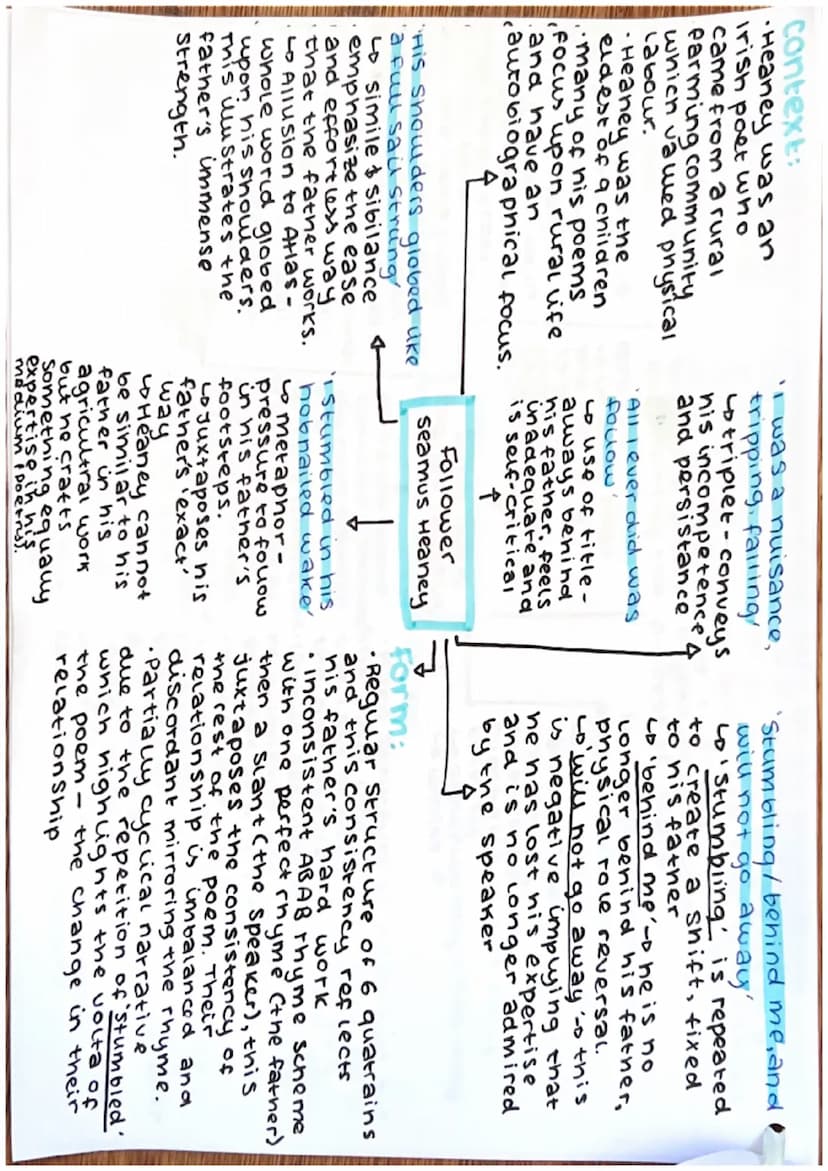 Context:
• Heaney was an
Irish poet who
came from a rural
farming community
which valued physical
labour.
• Heaney was the
eldest of 9 children
• many of his poems
focus upon rural life
and have an
autobiographical focus.
'I was a nuisance,
tripping, falling'
↳ triplet - conveys
his incompetence
and persistance
'All I ever did was
follow'
↳ use of title -
always behind
his father, feels
inadequate and
is self-critical
'Stumbling / behind me, and
will not go away'
↳ 'Stumbling' is repeated
to create a shift, fixed
to his father
↳ 'behind me' → he is no
longer behind his father,
physical role reversal.
↳ 'will not go away' → this
is negative implying that
he has lost his expertise
and is no longer admired
by the speaker
Follower
Seamus Heaney
'His shoulders globed like
a full sail strung'
↳ simile & sibilance
emphasize the ease
and effortless way
that the father works.
↳ Allusion to Atlas -
whole world globed
upon his shoulders.
this illustrates the
father's immense
strength.
'I stumbled in his
hobnailed wake'
↳ metaphor -
pressure to follow
in his father's
footsteps.
↳ juxtaposes his
father's 'exact'
way
↳ Heaney cannot
be similar to his
father in his
agricultral work
but he crafts
something equally
expertise in his
medium (poetry).
Form:
• Regular structure of 6 quatrains
and this consistency reflects
his father's hard work
• Inconsistent ABAB rhyme scheme
with one perfect rhyme (the father)
then a slant (the speaker), this
juxtaposes the consistency of
the rest of the poem. Their
relationship is imbalanced and
discordant mirroring the rhyme.
• Partially cyclical narrative
due to the repetition of 'stumbled'
which highlights the volta of
the poem - the change in their
relationship